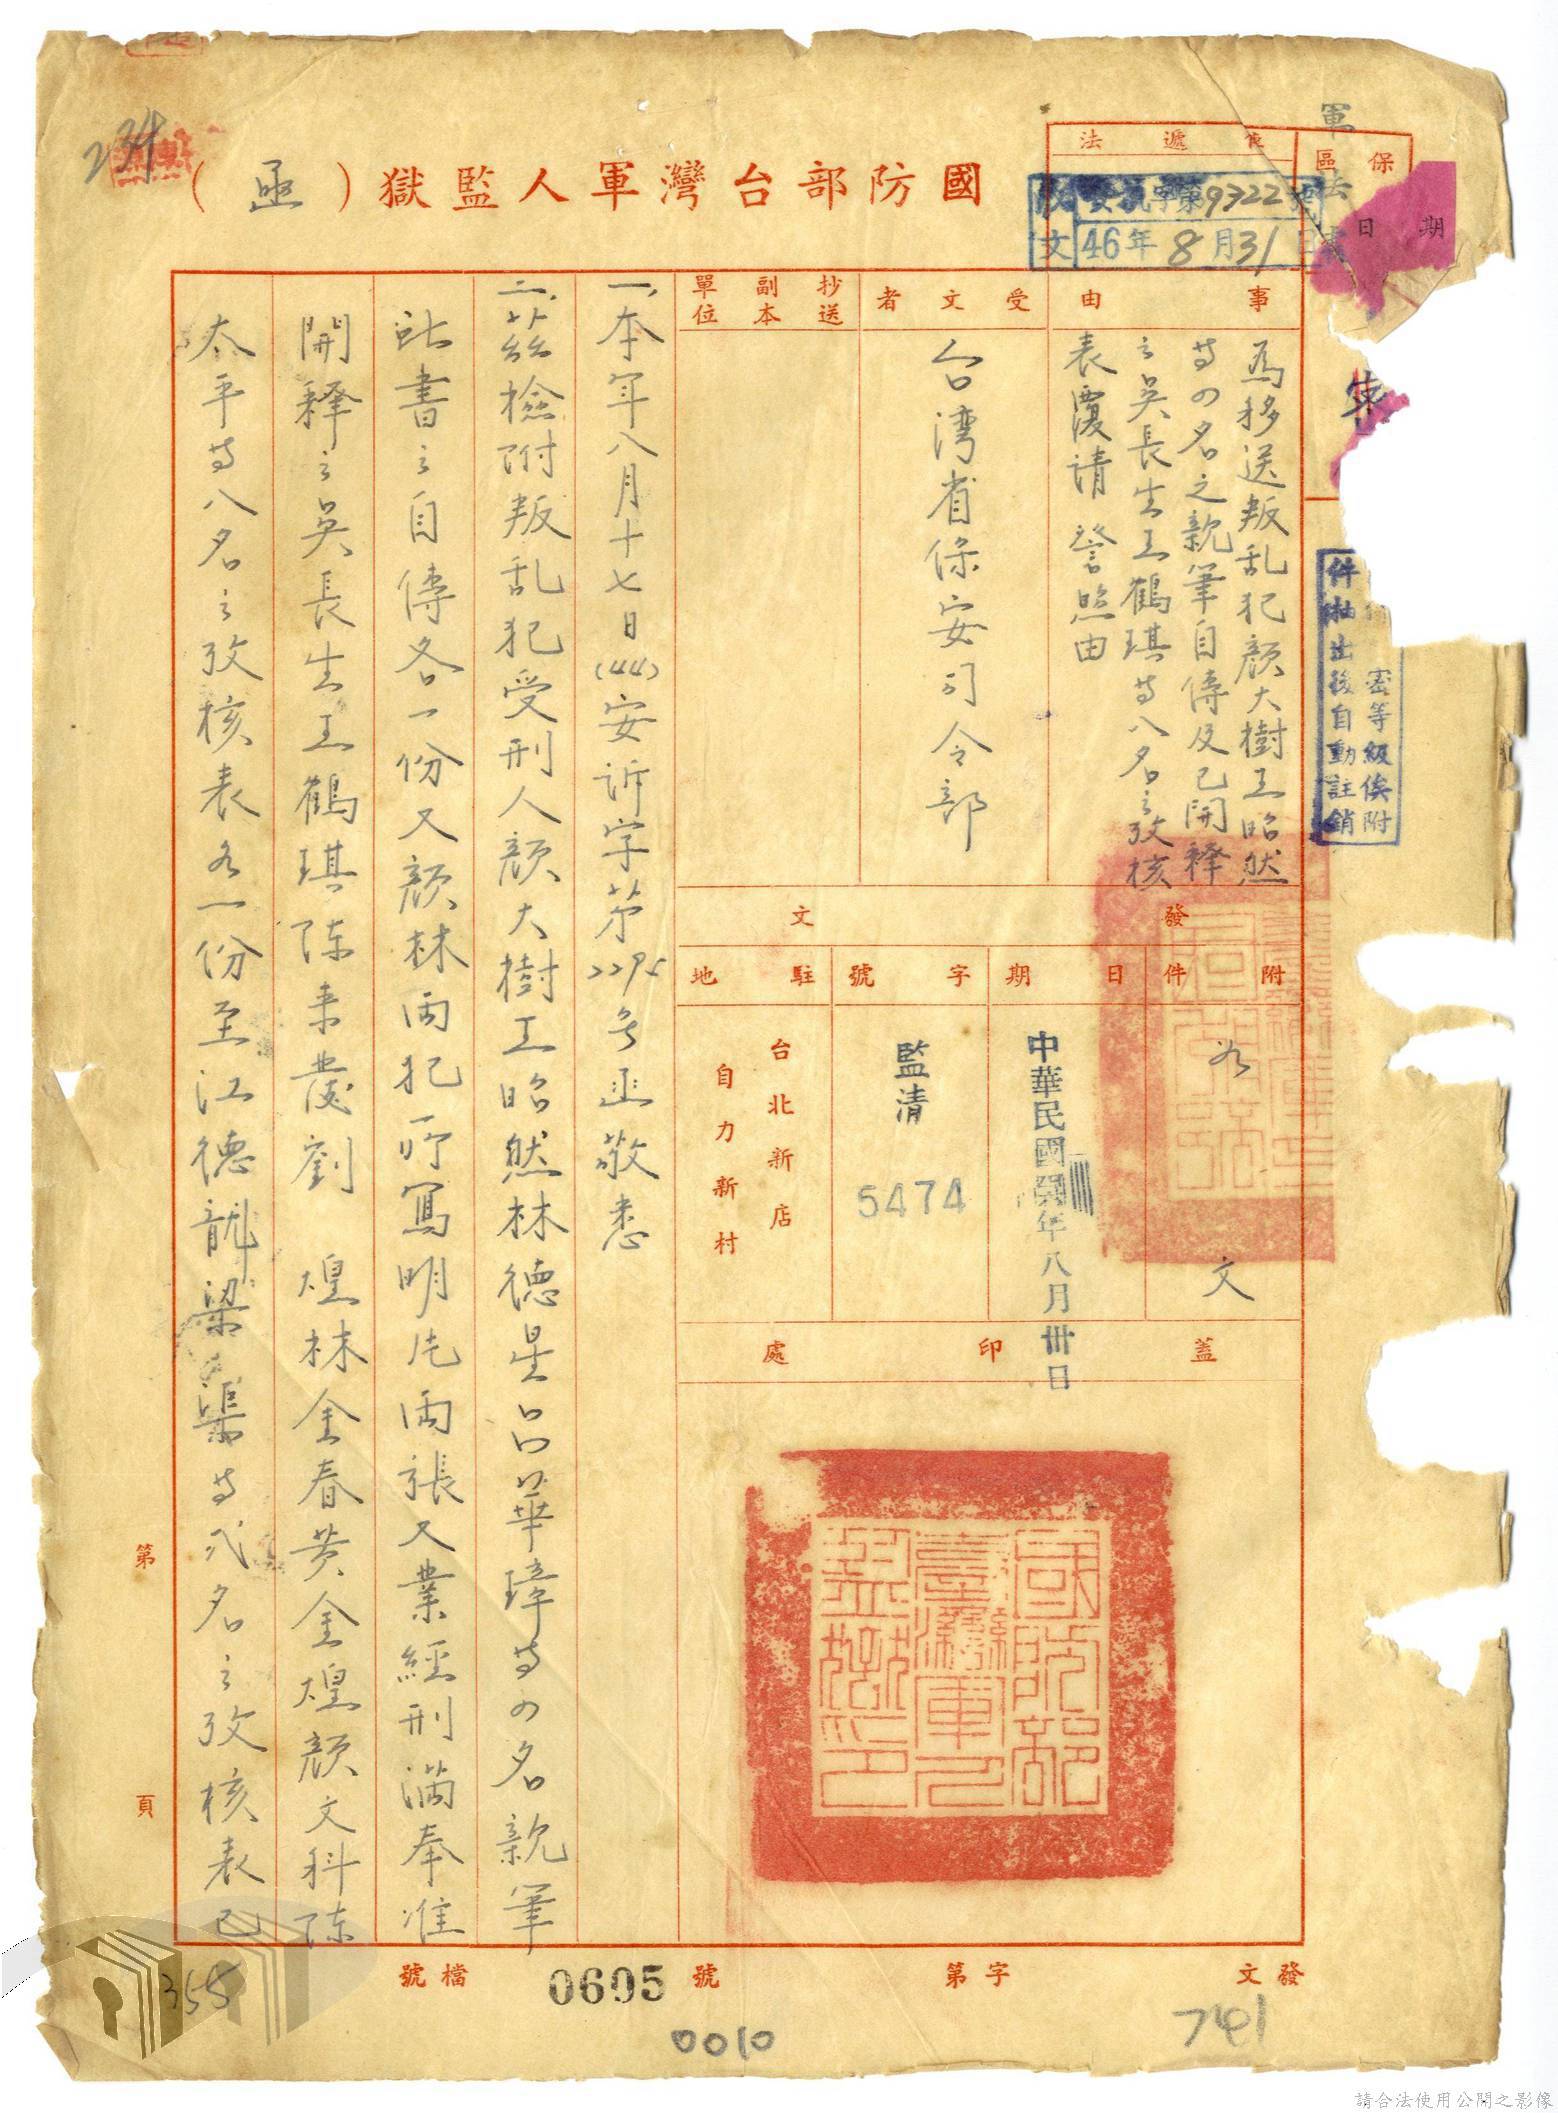 國防部台灣軍人監獄（函）
保
區
法
遞
日期
軍法
收文
字第9322號
46年8月31日
事由
為移送叛乱犯顏大樹王昭然
等四名之親筆自傳及已開釋
之吳長生王鶴琪等八名之攷核
表覆請 詧照由
受文者
台湾省保安司令部
抄送副本單位
發文
附件
如文
日期
中華民國 年八月卅日
字號
監清
5474
駐地
台北新店
自力新村
蓋印處
國防部臺灣軍人監獄印
密等級俟附
件抽出後自動註銷
一、本年八月十七日(44)安訴字第2295号函敬悉
二、茲檢附叛乱犯受刑人顏大樹王昭然林德星呂華璋等四名親筆
書之自傳各一份又顏林兩犯所寫明片兩張又業經刑滿奉准
開釋之吳長生王鶴琪陈来發劉 煌林金春黄金煌顏文科陈
太平等八名之攷核表各一份至江德龍梁渠等弍名之攷核表已
第 頁
發文 字第 號
0605
檔號
355
0010
741
234
請合法使用公開之影像